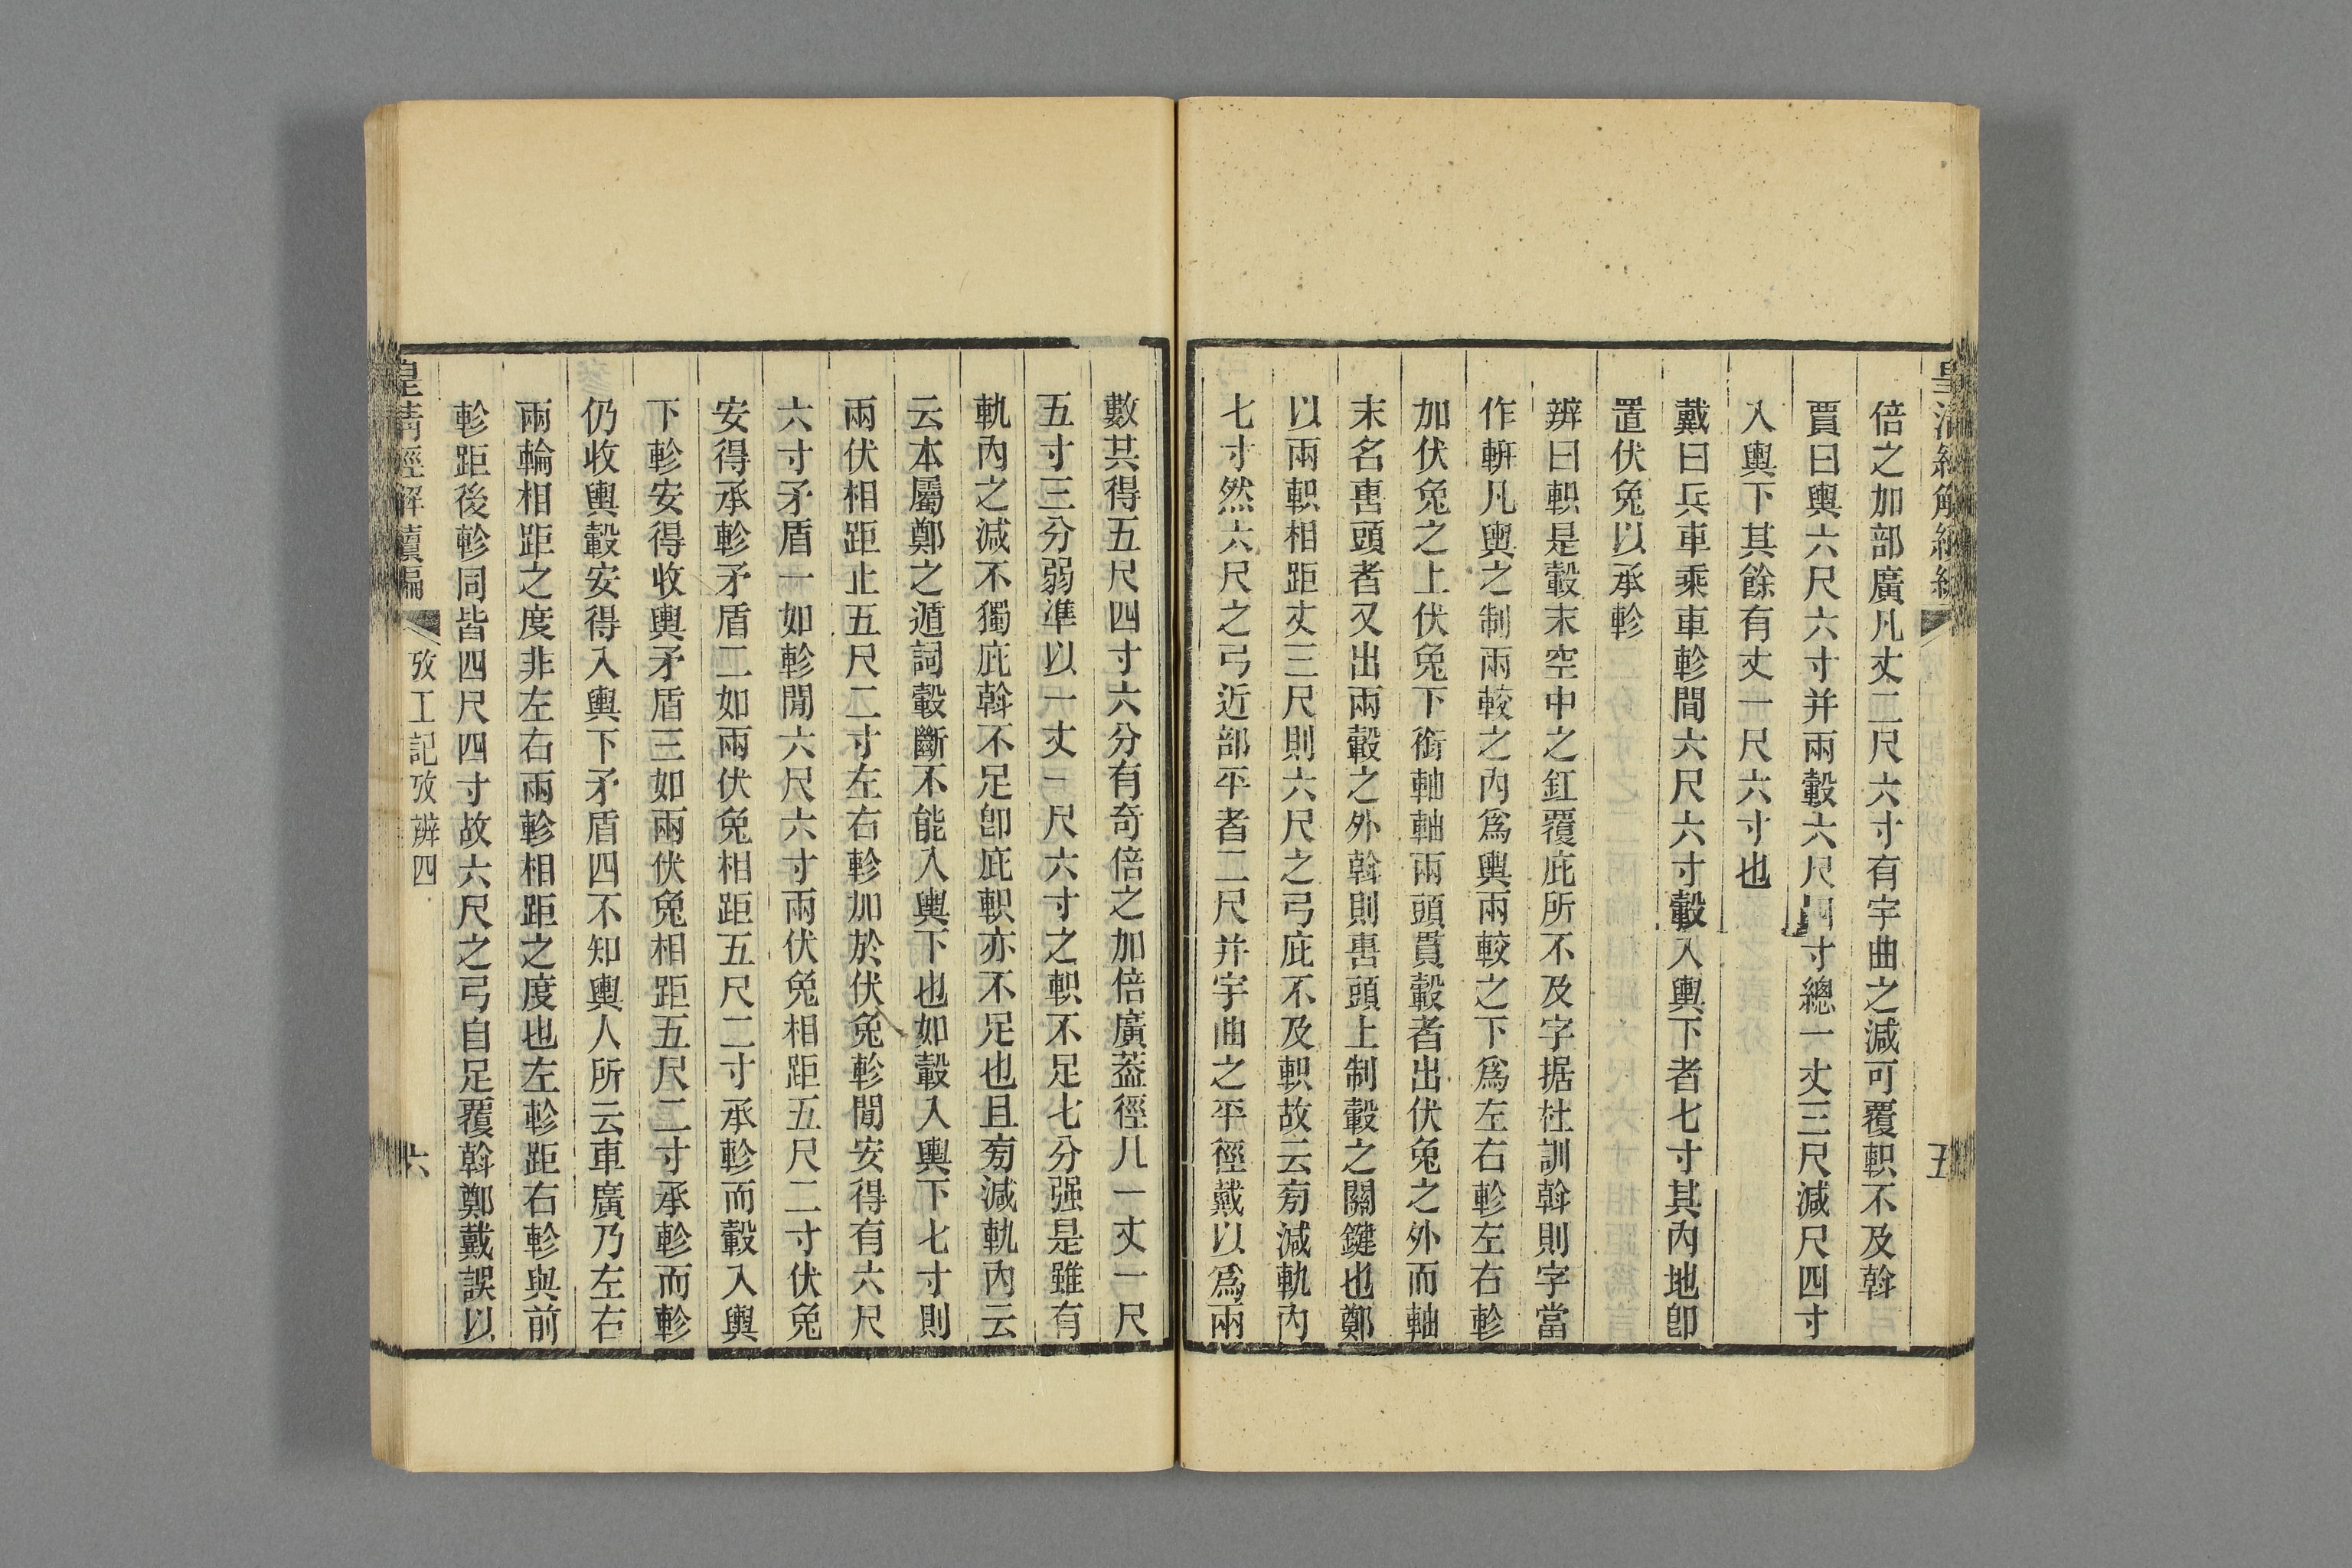 倍之加部廣凡丈二尺六寸有宇曲之減可覆軹不及斡
賈曰輿六尺六寸并兩轂六尺四寸總一丈三尺減尺四寸
入輿下其餘有丈一尺六寸也
戴曰兵車乘車軫間六尺六寸轂入輿下者七寸其內地卽
置伏兔以承軫
辨曰軹是轂末空中之釭覆庇所不及字据杜訓斡則字當
作軿凡輿之制兩較之內爲輿兩較之下爲左右軫左右軫
加伏兔之上伏兔下銜軸軸兩頭貫轂者出伏兔之外而軸
末名軎頭者又出兩轂之外斡則軎頭上制轂之關鍵也鄭
以兩軹相距丈三尺則六尺之弓庇不及軹故云㫄減軌內
七寸然六尺之弓近部平者二尺并宇曲之平徑戴以爲兩
數其得五尺四寸六分有奇倍之加倍廣葢徑凡一丈一尺
五寸三分弱準以一丈一尺六寸之軹不足七分强是雖有
軌內之減不獨庇斡不足卽庇軹亦不足也且㫄減軌內云
云本屬鄭之遁詞轂斷不能入輿下也如轂入輿下七寸則
兩伏相距止五尺二寸左右軫加於伏兔軫閒安得有六尺
六寸矛盾一如軫閒六尺六寸兩伏兔相距五尺二寸伏兔
安得承軫矛盾二如兩伏兔相距五尺二寸承軫而轂入輿
下軫安得收輿矛盾三如兩伏兔相距五尺二寸承軫而軫
仍收輿轂安得入輿下矛盾四不知輿人所云車廣乃左右
兩輪相距之度非左右兩軫相距之度也左軫距右軫與前
軫距後軫同皆四尺四寸故六尺之弓自足覆斡鄭戴誤以
皇淸經解續編
攷工記攷辨四
六